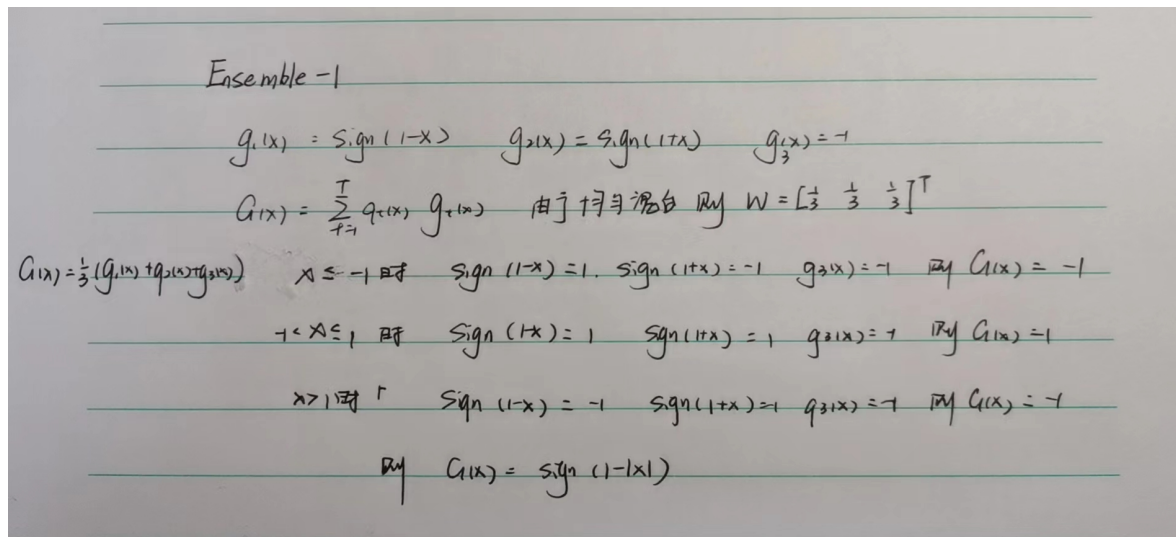 Ensemble-1
g₁(x) = Sign(1-x) g₂(x) = Sign(1+x) g₃(x) = -1
G(x) = \sum_{t=1}^{T} q_t(x) g_t(x) 由于均匀混合 则 W = [1/3 1/3 1/3]^T
G(x) = 1/3 (g₁(x) + g₂(x) + g₃(x)) x ≤ -1 时 Sign (1-x) = 1. Sign (1+x) = -1 g₃(x) = -1 则 G(x) = -1
-1 < x ≤ 1 时 Sign (1-x) = 1 Sign(1+x) = 1 g₃(x) = -1 则 G(x) = 1
x > 1 时 Sign (1-x) = -1 Sign(1+x) = 1 g₃(x) = -1 则 G(x) = -1
则 G(x) = Sign (1-|x|)